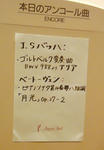 本日のアンコール曲
ENCORE
J.Sバッハ:
・ゴルトベルク変奏曲
BWV 988より アリア
ベートーヴェン:
・ピアノソナタ第14番嬰ハ短調
「月光」 op.27-2